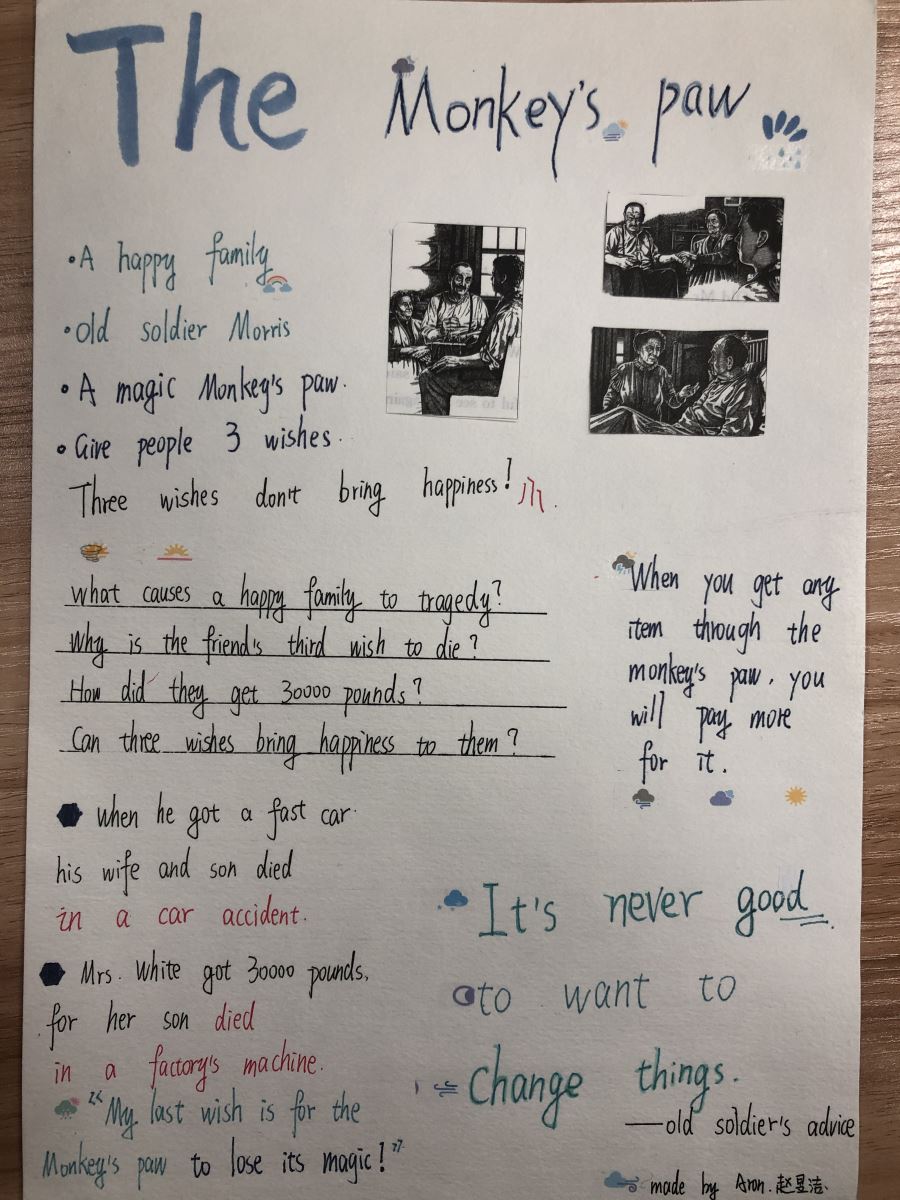 The Monkey's paw
•A happy family
•old soldier Morris
•A magic Monkey's paw.
•Give people 3 wishes.
Three wishes don't bring happiness!
What causes a happy family to tragedy?
Why is the friend's third wish to die?
How did they get 30000 pounds?
Can three wishes bring happiness to them?
When you get any
item through the
monkey's paw, you
will pay more
for it.
When he got a fast car.
his wife and son died
in a car accident.
Mrs. White got 30000 pounds,
for her son died
in a factory's machine.
"My last wish is for the
Monkey's paw to lose its magic!"
It's never good
to want to
change things.
—old soldier's advice
made by Aron.赵昱洁